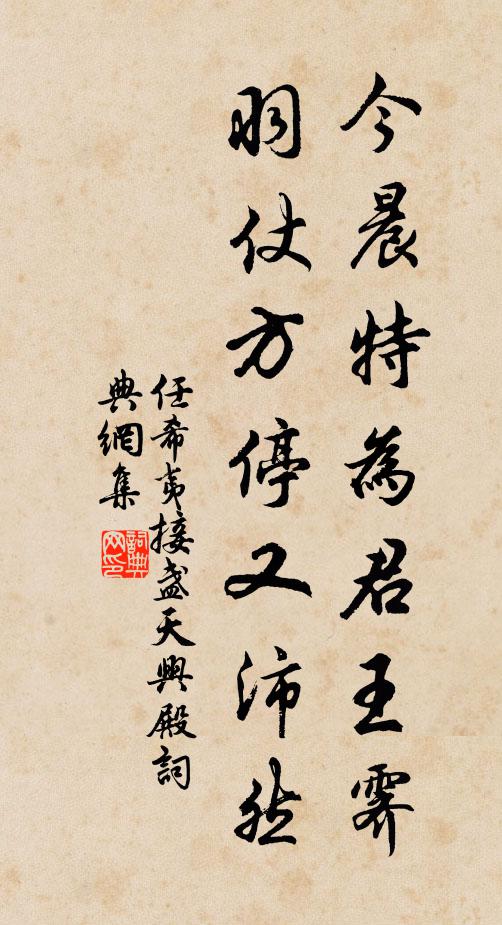 今晨特為君王霽
羽仗方停又沛然
任希夷接盏天興殿詞
典網集
詞典
网印